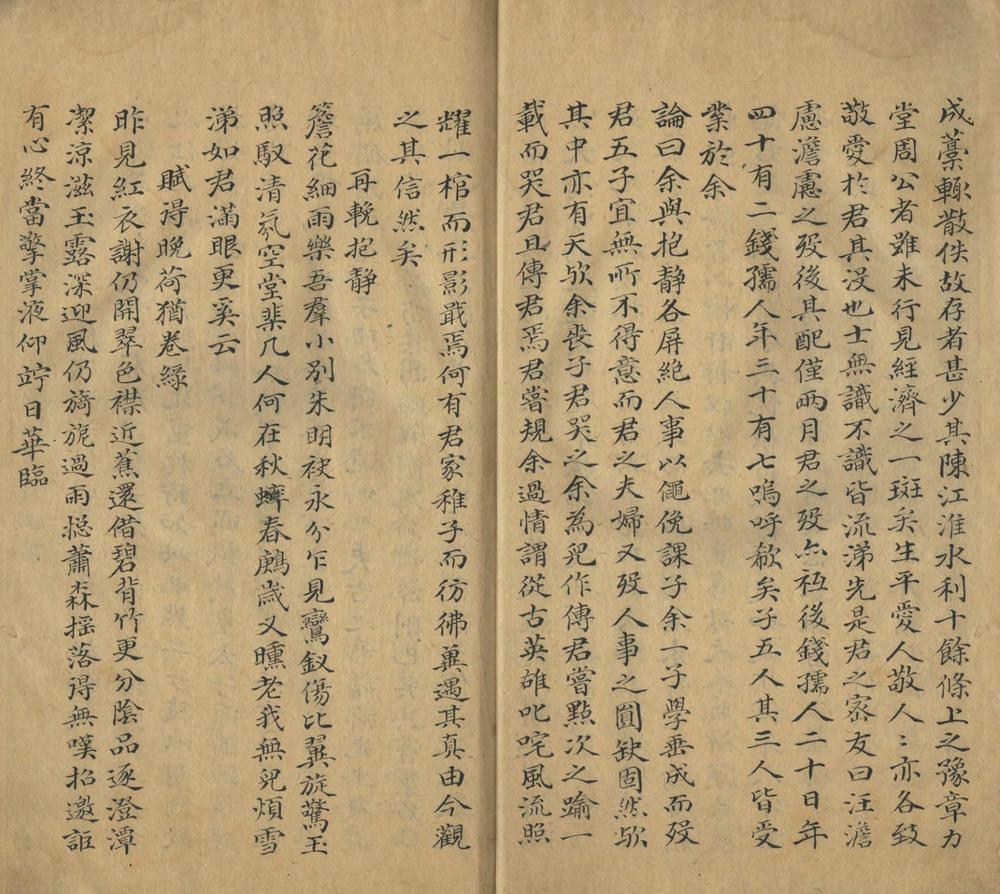 成藁輙散佚故存者甚少其陳江淮水利十餘條上之豫章力
堂周公者雖未行見經濟之一斑矣生平愛人敬人〻亦各致
敬愛於君其没也士無識不識皆流涕先是君之密友曰汪澹
慮澹慮之歿後其配僅兩月君之歿亦祗後錢孺人二十日年
四十有二錢孺人年三十有七嗚呼欷矣子五人其三人皆受
業於余
論曰余與抱静各屏絶人事以僶俛課子余一子學垂成而歿
君五子宜無所不得意而君之夫婦又歿人事之圓缺固然歟
其中亦有天歟余丧子君哭之余為兒作傳君嘗點次之踰一
載而哭君且傳君焉君嘗規余過情謂從古英雄叱咤風流照
耀一棺而形影戢焉何有君家稚子而彷彿冀遇其真由今觀
之其信然矣
再輓抱静
簷花細雨樂吾羣小別朱明袂永分乍見鸞釵傷比翼旋驚玉
照馭清氛空堂棐几人何在秋蟀春鷓歲又曛老我無兒煩雪
涕如君滿眼更奚云
賦得晚荷猶卷綠
昨見紅衣謝仍開翠色襟近蕉還借碧背竹更分陰品逐澄潭
潔涼滋玉露深迎風仍旖旎過雨揔蕭森揺落得無嘆招邀詎
有心終當擎掌液仰竚日華臨